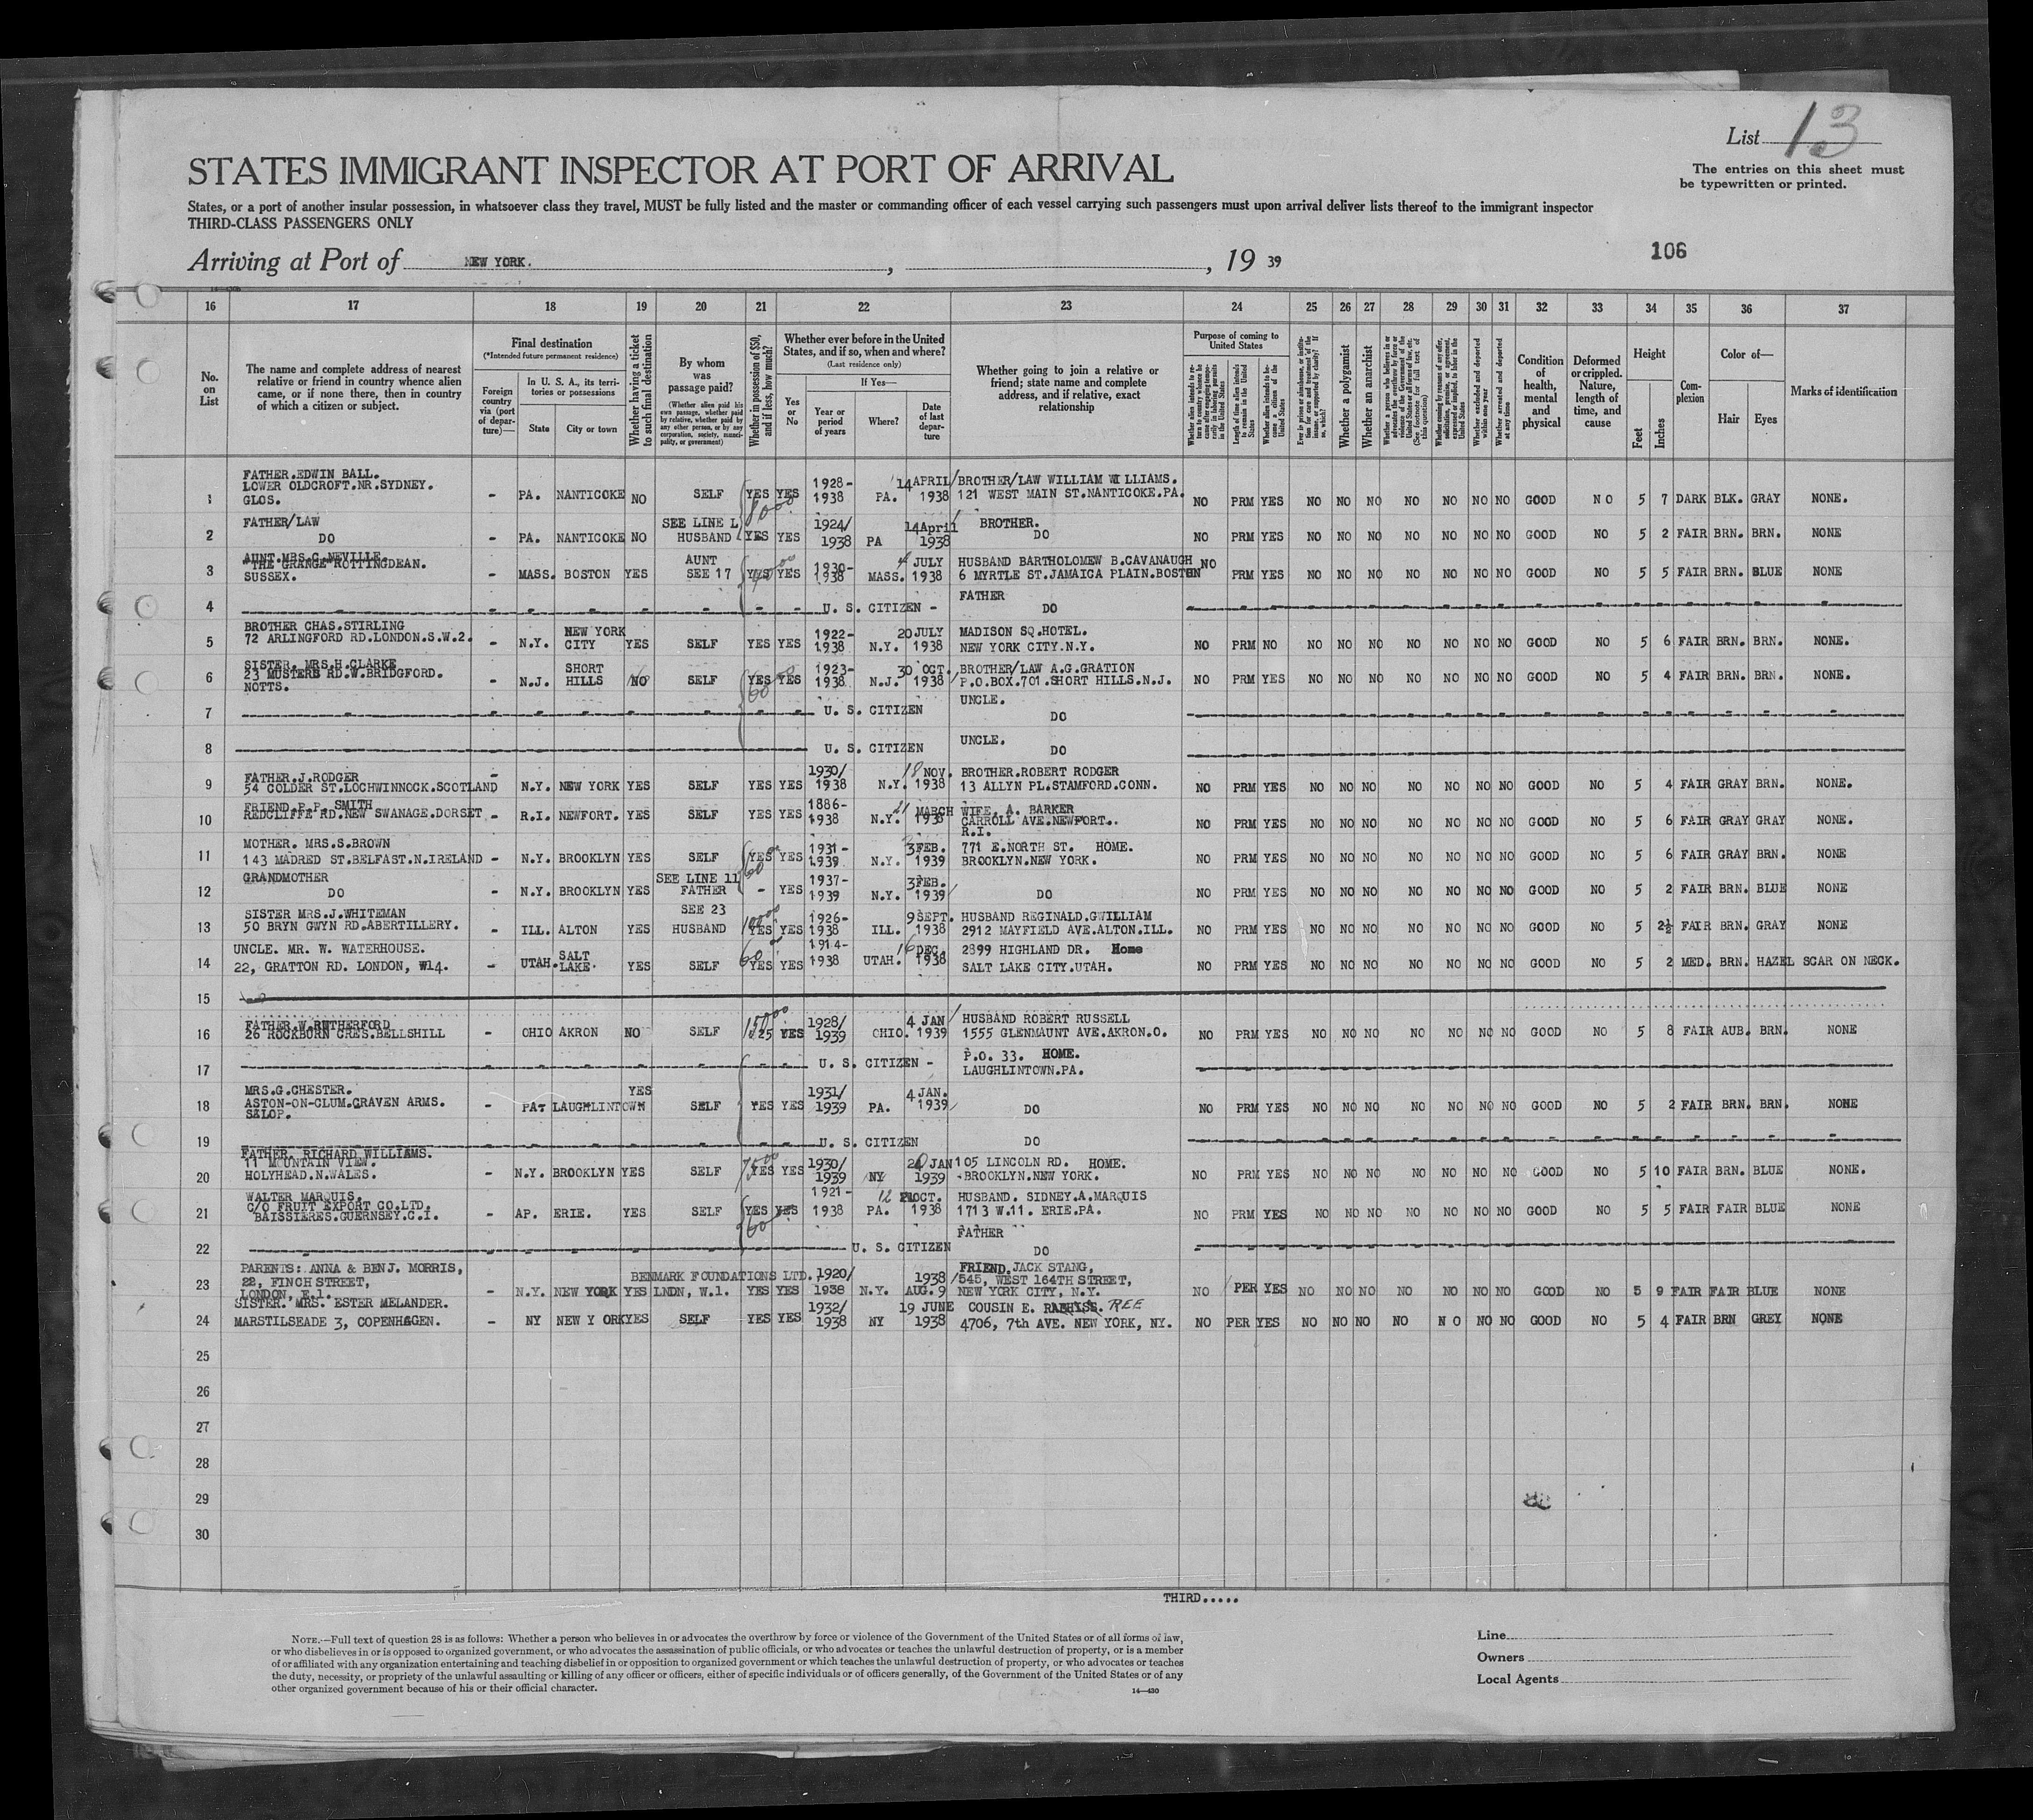 List 13
The entries on this sheet must
be typewritten or printed.
STATES IMMIGRANT INSPECTOR AT PORT OF ARRIVAL
States, or a port of another insular possession, in whatsoever class they travel, MUST be fully listed and the master or commanding officer of each vessel carrying such passengers must upon arrival deliver lists thereof to the immigrant inspector
THIRD-CLASS PASSENGERS ONLY
Arriving at Port of NEW YORK. , , 19 39
106
16 17 18 19 20 21 22 23 24 25 26 27 28 29 30 31 32 33 34 35 36 37
No. on List
The name and complete address of nearest
relative or friend in country whence alien
came, or if none there, then in country
of which a citizen or subject.
Final destination
(*Intended future permanent residence)
Foreign country via (port of departure)—
In U. S. A., its territories or possessions
State
City or town
Whether having a ticket to such final destination
By whom was passage paid?
(Whether alien paid his own passage, whether paid by relative, whether paid by any other person, or by any corporation, society, municipality, or government)
Whether in possession of $50, and if less, how much?
Whether ever before in the United
States, and if so, when and where?
(Last residence only)
Yes or No
If Yes—
Year or period of years
Where?
Date of last departure
Whether going to join a relative or
friend; state name and complete
address, and if relative, exact
relationship
Purpose of coming to United States
Length of time alien intends to remain in the United States
Whether a polygamist
Whether an anarchist
Whether excluded and deported within one year
Whether arrested and deported at any time
Condition of health, mental and physical
Deformed or crippled. Nature, length of time, and cause
Height
Feet
Inches
Complexion
Color of—
Hair
Eyes
Marks of identification
FATHER.EDWIN BALL.
LOWER OLDCROFT.NR.SYDNEY.
GLOS.
1 - PA. NANTICOKE NO SELF YES YES 1928-1938 PA. 14 APRIL 1938 BROTHER/LAW WILLIAM WILLIAMS. 121 WEST MAIN ST.NANTICOKE.PA. NO PRM YES NO NO NO NO NO NO NO GOOD NO 5 7 DARK BLK. GRAY NONE.
FATHER/LAW
2 DO - PA. NANTICOKE NO SEE LINE L HUSBAND YES YES 1924/1938 PA 14 April 1938 BROTHER. DO NO PRM YES NO NO NO NO NO NO NO GOOD NO 5 2 FAIR BRN. BRN. NONE
AUNT.MRS.C.NEVILLE.
"THE GRANGE"ROTTINGDEAN.
SUSSEX.
3 - MASS. BOSTON YES AUNT SEE 17 YES YES 1930-1938 MASS. 4 JULY 1938 HUSBAND BARTHOLOMEW B.CAVANAUGH 6 MYRTLE ST.JAMAICA PLAIN.BOSTON NO PRM YES NO NO NO NO NO NO NO GOOD NO 5 5 FAIR BRN. BLUE NONE
4 U. S. CITIZEN - FATHER DO
BROTHER CHAS.STIRLING
72 ARLINGFORD RD.LONDON.S.W.2.
5 - N.Y. NEW YORK CITY YES SELF YES YES 1922-1938 N.Y. 20 JULY 1938 MADISON SQ.HOTEL. NEW YORK CITY.N.Y. NO PRM NO NO NO NO NO NO NO NO GOOD NO 5 6 FAIR BRN. BRN. NONE.
SISTER. MRS.H.CLARKE
23 MUSTERS RD.W.BRIDGFORD.
NOTTS.
6 - N.J. SHORT HILLS NO SELF YES YES 60 1923-1938 N.J. 30 OCT. 1938 BROTHER/LAW A.G.GRATION P.O.BOX.701.SHORT HILLS.N.J. NO PRM YES NO NO NO NO NO NO NO GOOD NO 5 4 FAIR BRN. BRN. NONE.
7 U. S. CITIZEN UNCLE. DO
8 U. S. CITIZEN UNCLE. DO
FATHER.J.RODGER
54 COLDER ST.LOCHWINNOCK.SCOTLAND
9 - N.Y. NEW YORK YES SELF YES YES 1930/1938 N.Y. 18 NOV. 1938 BROTHER.ROBERT RODGER 13 ALLYN PL.STAMFORD.CONN. NO PRM YES NO NO NO NO NO NO NO GOOD NO 5 4 FAIR GRAY BRN. NONE.
FRIEND.P.P. SMITH
REDCLIFFE RD.NEW SWANAGE.DORSET
10 - R.I. NEWFORT. YES SELF YES YES 1886-1938 N.Y. 21 MARCH 1938 WIFE. A. BARKER CARROLL AVE.NEWPORT.. R.I. NO PRM YES NO NO NO NO NO NO NO GOOD NO 5 6 FAIR GRAY GRAY NONE.
MOTHER. MRS.S.BROWN
143 MADRED ST.BELFAST.N.IRELAND
11 - N.Y. BROOKLYN YES SELF YES YES 60 1931-1939 N.Y. 3 FEB. 1939 771 E.NORTH ST. HOME. BROOKLYN.NEW YORK. NO PRM YES NO NO NO NO NO NO NO GOOD NO 5 6 FAIR GRAY BRN. NONE
GRANDMOTHER
12 DO - N.Y. BROOKLYN YES SEE LINE 11 FATHER - YES 1937-1939 N.Y. 3 FEB. 1939 DO NO PRM YES NO NO NO NO NO NO NO GOOD NO 5 2 FAIR BRN. BLUE NONE
SISTER MRS.J.WHITEMAN
50 BRYN GWYN RD.ABERTILLERY.
13 - ILL. ALTON YES SEE 23 HUSBAND YES YES 1926-1938 ILL. 9 SEPT. 1938 HUSBAND REGINALD.GWILLIAM 2912 MAYFIELD AVE.ALTON.ILL. NO PRM YES NO NO NO NO NO NO NO GOOD NO 5 2½ FAIR BRN. GRAY NONE
UNCLE. MR. W. WATERHOUSE.
22, GRATTON RD. LONDON, W14.
14 - UTAH. SALT LAKE. YES SELF 60 YES YES 1914-1938 UTAH. 16 DEC. 1938 2899 HIGHLAND DR. Home SALT LAKE CITY.UTAH. NO PRM YES NO NO NO NO NO NO NO GOOD NO 5 2 MED. BRN. HAZEL SCAR ON NECK.
15
FATHER.W.RUTHERFORD
26 ROCKBURN CRES.BELLSHILL
16 - OHIO AKRON NO SELF YES 1928/1939 OHIO. 4 JAN 1939 HUSBAND ROBERT RUSSELL 1555 GLENMAUNT AVE.AKRON.O. NO PRM YES NO NO NO NO NO NO NO GOOD NO 5 8 FAIR AUB. BRN. NONE
17 U. S. CITIZEN - P.O. 33. HOME. LAUGHLINTOWN.PA.
MRS.G.CHESTER.
ASTON-ON-CLUM.CRAVEN ARMS.
SALOP.
18 - PA. LAUGHLINTOWN YES SELF YES YES 1931/1939 PA. 4 JAN. 1939 DO NO PRM YES NO NO NO NO NO NO NO GOOD NO 5 2 FAIR BRN. BRN. NONE
19 U. S. CITIZEN DO
FATHER. RICHARD WILLIAMS.
11 MOUNTAIN VIEW.
HOLYHEAD.N.WALES.
20 - N.Y. BROOKLYN YES SELF YES YES 1930/1939 NY JAN 1939 105 LINCOLN RD. HOME. BROOKLYN.NEW YORK. NO PRM YES NO NO NO NO NO NO NO GOOD NO 5 10 FAIR BRN. BLUE NONE.
WALTER MARQUIS.
C/O FRUIT EXPORT CO.LTD.
BAISSIERES.GUERNSEY.C.I.
21 - AP. ERIE. YES SELF YES YES 60 1921-1938 PA. 12 OCT. 1938 HUSBAND. SIDNEY.A.MARQUIS 1713 W.11. ERIE.PA. NO PRM YES NO NO NO NO NO NO NO GOOD NO 5 5 FAIR FAIR BLUE NONE
22 U. S. CITIZEN FATHER DO
PARENTS: ANNA & BENJ. MORRIS,
22, FINCH STREET,
LONDON, E.1.
23 - N.Y. NEW YORK YES BENMARK FOUNDATIONS LTD. LNDN, W.1. YES YES 1920/1938 N.Y. 1938 AUG.9 FRIEND.JACK STANG, 545, WEST 164TH STREET, NEW YORK CITY, N.Y. NO PER YES NO NO NO NO NO NO NO GOOD NO 5 9 FAIR FAIR BLUE NONE
SISTER. MRS. ESTER MELANDER.
MARSTILSEADE 3, COPENHAGEN.
24 - NY NEW Y ORK YES SELF YES YES 1932/1938 NY 19 JUNE 1938 COUSIN E. REE 4706, 7th AVE. NEW YORK, NY. NO PER YES NO NO NO NO N O NO NO GOOD NO 5 4 FAIR BRN GREY NONE
25
26
27
28
29
30
THIRD.....
NOTE.—Full text of question 28 is as follows: Whether a person who believes in or advocates the overthrow by force or violence of the Government of the United States or of all forms of law,
or who disbelieves in or is opposed to organized government, or who advocates the assassination of public officials, or who advocates or teaches the unlawful destruction of property, or is a member
of or affiliated with any organization entertaining and teaching disbelief in or opposition to organized government or which teaches the unlawful destruction of property, or who advocates or teaches
the duty, necessity, or propriety of the unlawful assaulting or killing of any officer or officers, either of specific individuals or of officers generally, of the Government of the United States or of any
other organized government because of his or their official character.
14—430
Line
Owners
Local Agents